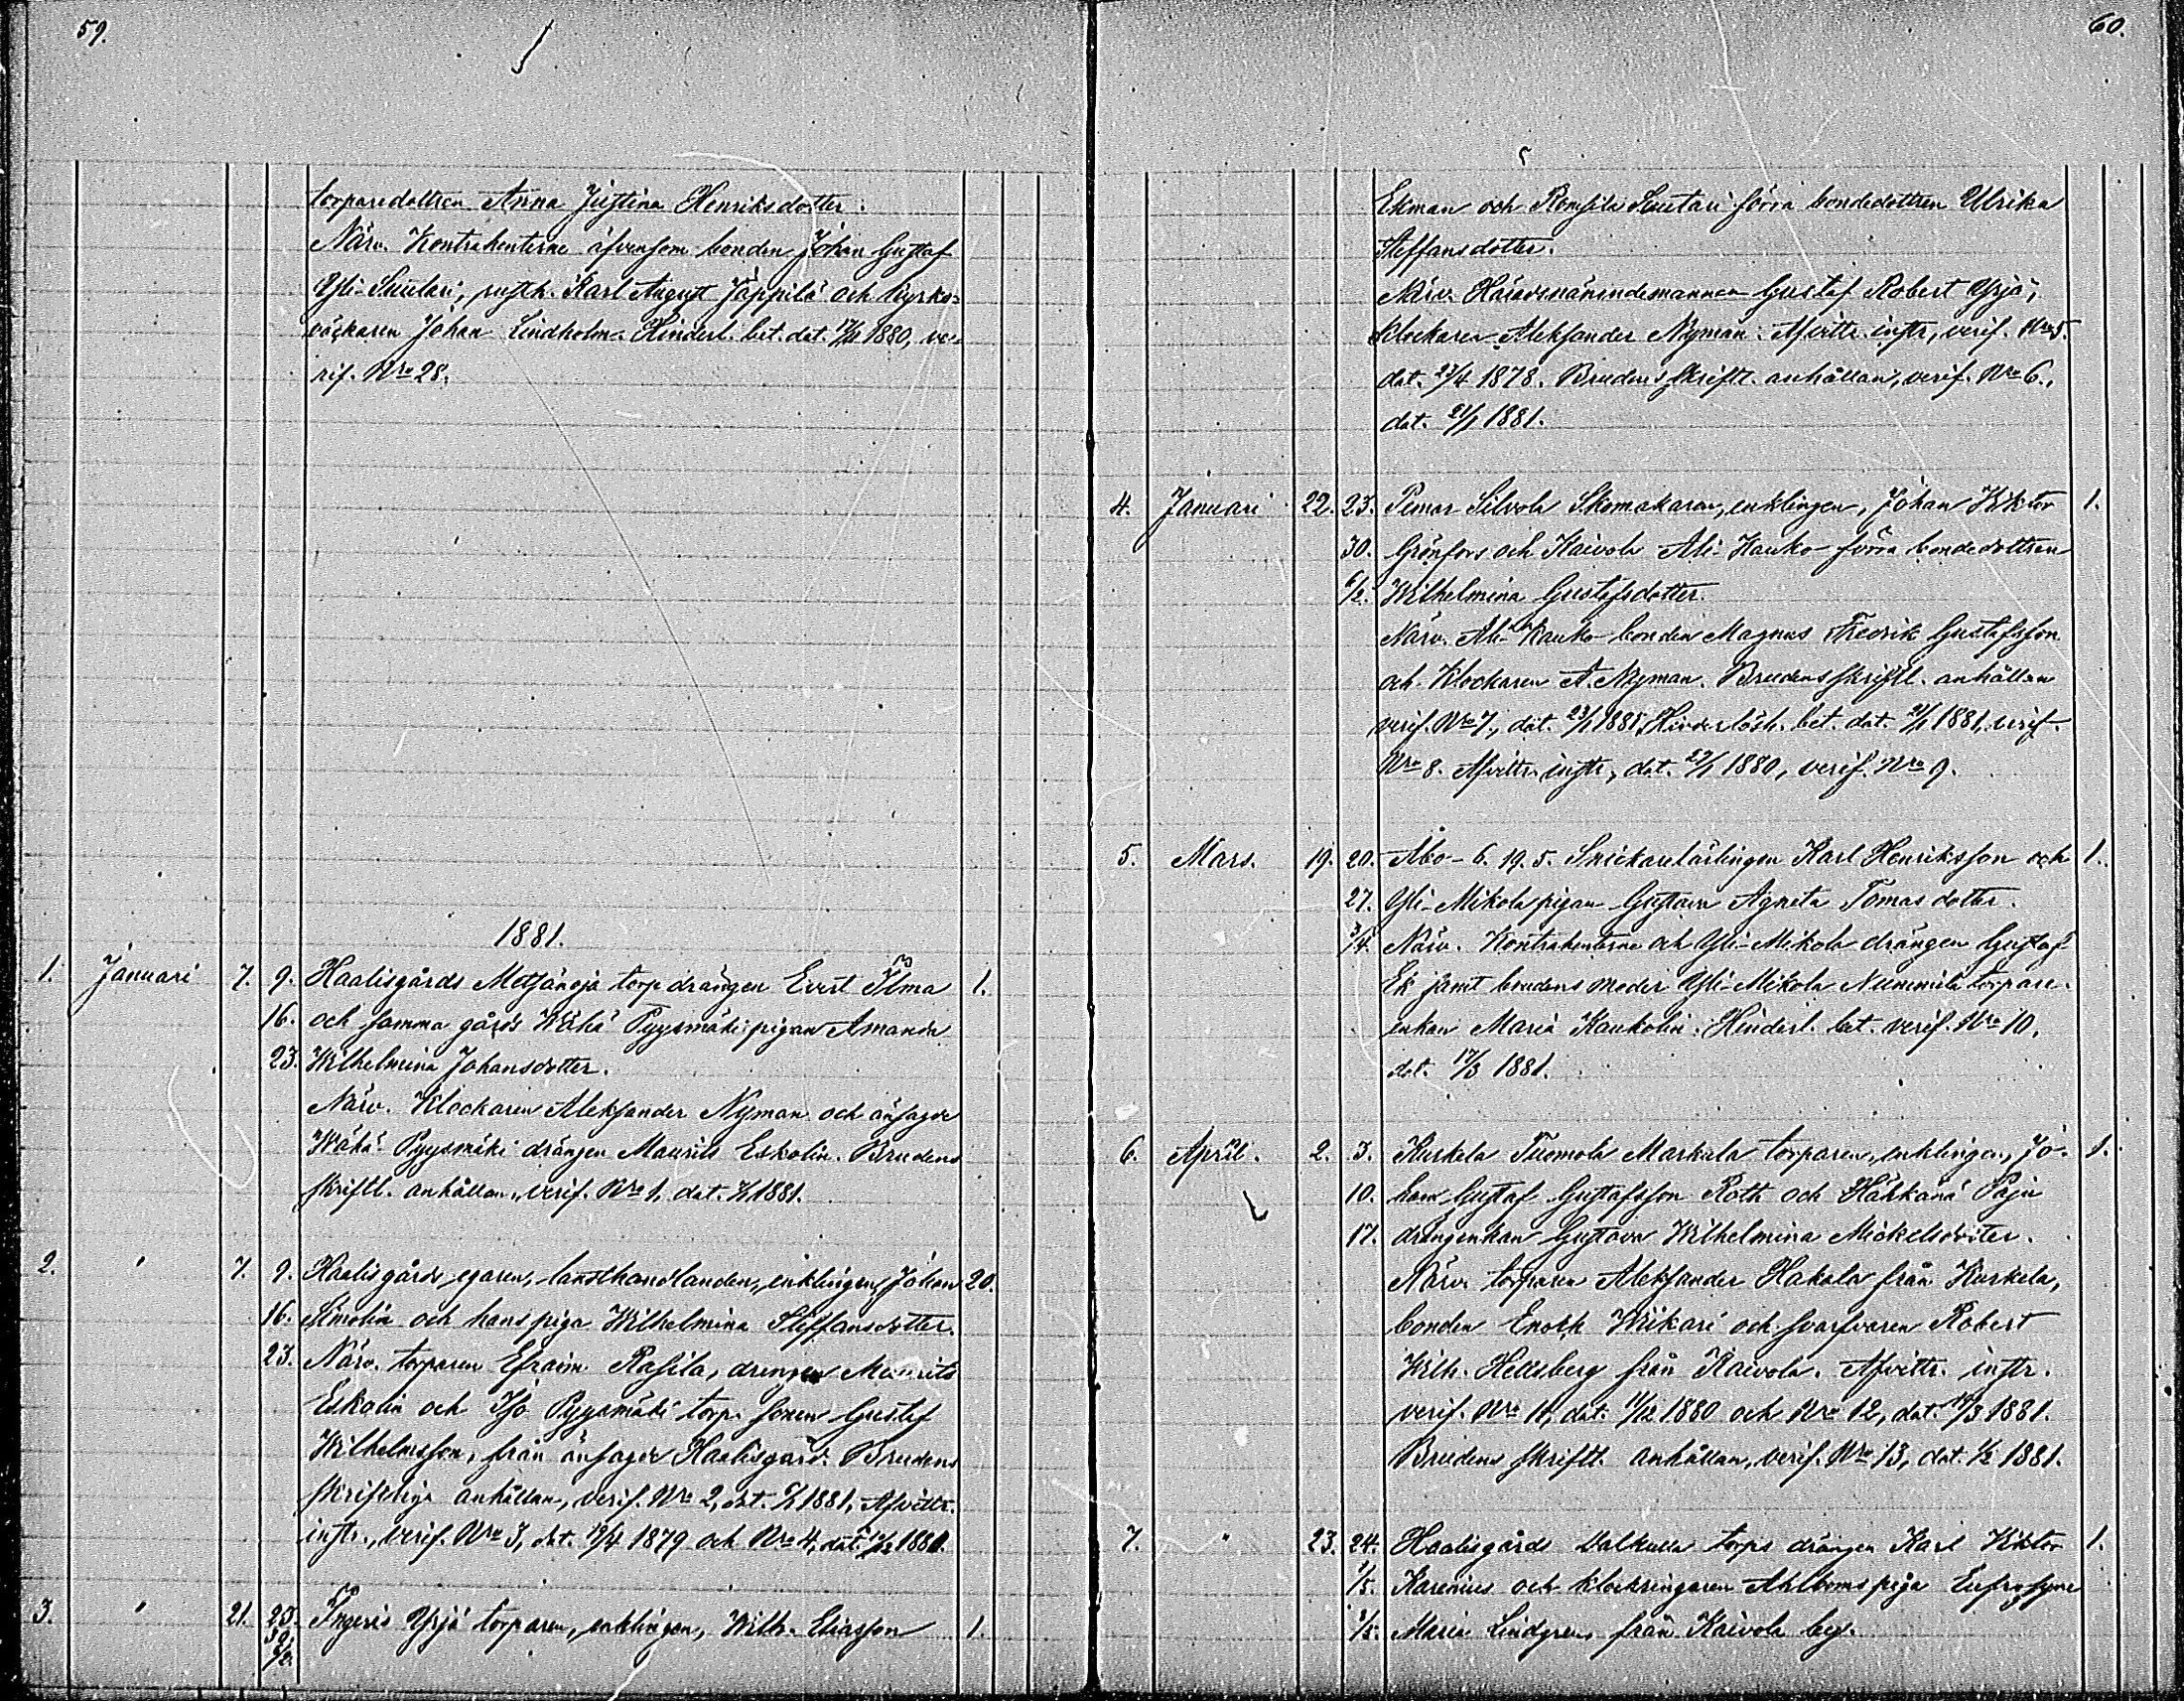 59.
torparedottren Anna Justina Henriksdotter.
Närv. Kontrahenterne äfvensom bonden Johan Gustaf
Yli-Skuleri, rusth. Karl August Jäppilä och kyrko-
väckaren Johan Lindholm. Hinderl. bet. dat. 1880, ve-
rif. Nro 28.
1881.
1. Januari 7. 9. Haalisgårds Metsänoja torp drängen Evert Ilma 1.
16. och samma gårds Wähä Pyysmäki pigan Amanda
23. Wilhelmina Johansdotter.
Närv. Klockaren Aleksander Nyman och ansagde
Wähä Pyysmäki drängen Maurits Eskolin. Brudens
skriftl. anhållan, verif. Nro 1, dat. 1881.
2. " 7. 9. Haalisgårds egaren, landthandlanden, enklingen, Johan 20.
16. Simolin och hans piga Wilhelmina Steffansdotter.
23. Närv. torparen Efraim Rasila, drengen Maurits
Eskolin och Iso Pyysmäki torp. sonen Gustaf
Wilhelmsson, från ansagde Haalisgård. Brudens
skriftliga anhållan, verif. Nro 2, dat. 1881, Afvittr.
instr., verif. Nro 3, dat. 19/4 1879 och Nro 4, dat. 1880.
3. " 21. 23. Ingeris Yrjä torparen, enklingen, Wilh. Eliasson 1.
30.
6/2.
60.
Ekman och förra bondedottren Ulrika
Steffansdotter.
Närv. Häradsnämndemannen Gustaf Robert Yrjä,
klockaren Aleksander Nyman. Afvittr. instr., verif. Nro 5.
dat. 23/4 1878. Brudens skriftl. anhållan, verif. Nro 6.,
dat. 21/1 1881.
4. Januari 22. 23. Pemar Silvola Skomakaren, enklingen, Johan Wiktor 1.
30. Grönfors och Kaivola Ali-Kauko förra bondedottren
6/2. Wilhelmina Gustafsdotter.
Närv. Ali-Kauko bonden Magnus Fredrik Gustafsson
och Klockaren A. Nyman. Brudens skriftl. anhållan
verif. Nro 7, dat. 23/1 1881, Hinderlösh. bet. dat. 21/1 1881, verif.
Nro 8. Afvittr. instr., dat. 1880, verif. Nro 9.
5. Mars. 19. 20. Åbo - 6. 19. 5. Snickarelärlingen Karl Henriksson och 1.
27. Yli-Mikola pigan Gustava Agneta Tomasdotter.
3/4. Närv. Kontrahenterne och Yli-Mikola drängen Gustaf
Ek jämt brudens moder Yli-Mikola Nummila torpare-
enkan Maria Kaukolin. Hinderl. bet. verif. Nro 10,
dat. 17/3 1881.
6. April. 2. 3. Kurkela Tuomola Markula torparen, enklingen, Jo- 1.
10. han Gustaf Gustafsson Roth och Härkänä Paju
17. drängenkan Gustava Wilhelmina Mickelsdotter.
Närv. torparen Aleksander Hakala från Kurkela,
bonden Enokh Wiikari och svarfvaren Robert
Wilh. Hellsberg från Kaivola. Afvittr. instr.
verif. Nro 11, dat. 11/12 1880 och Nro 12, dat. 1881.
Brudens skriftl. anhållan, verif. Nro 13, dat. 1/2 1881.
7. " 23. 24. Haalisgårds Valkulla torps drängen Karl Wiktor 1.
1/5. Karenius och klockringaren Ahlboms piga Eufrosyne
Maria Lindgren från Kaivola by.